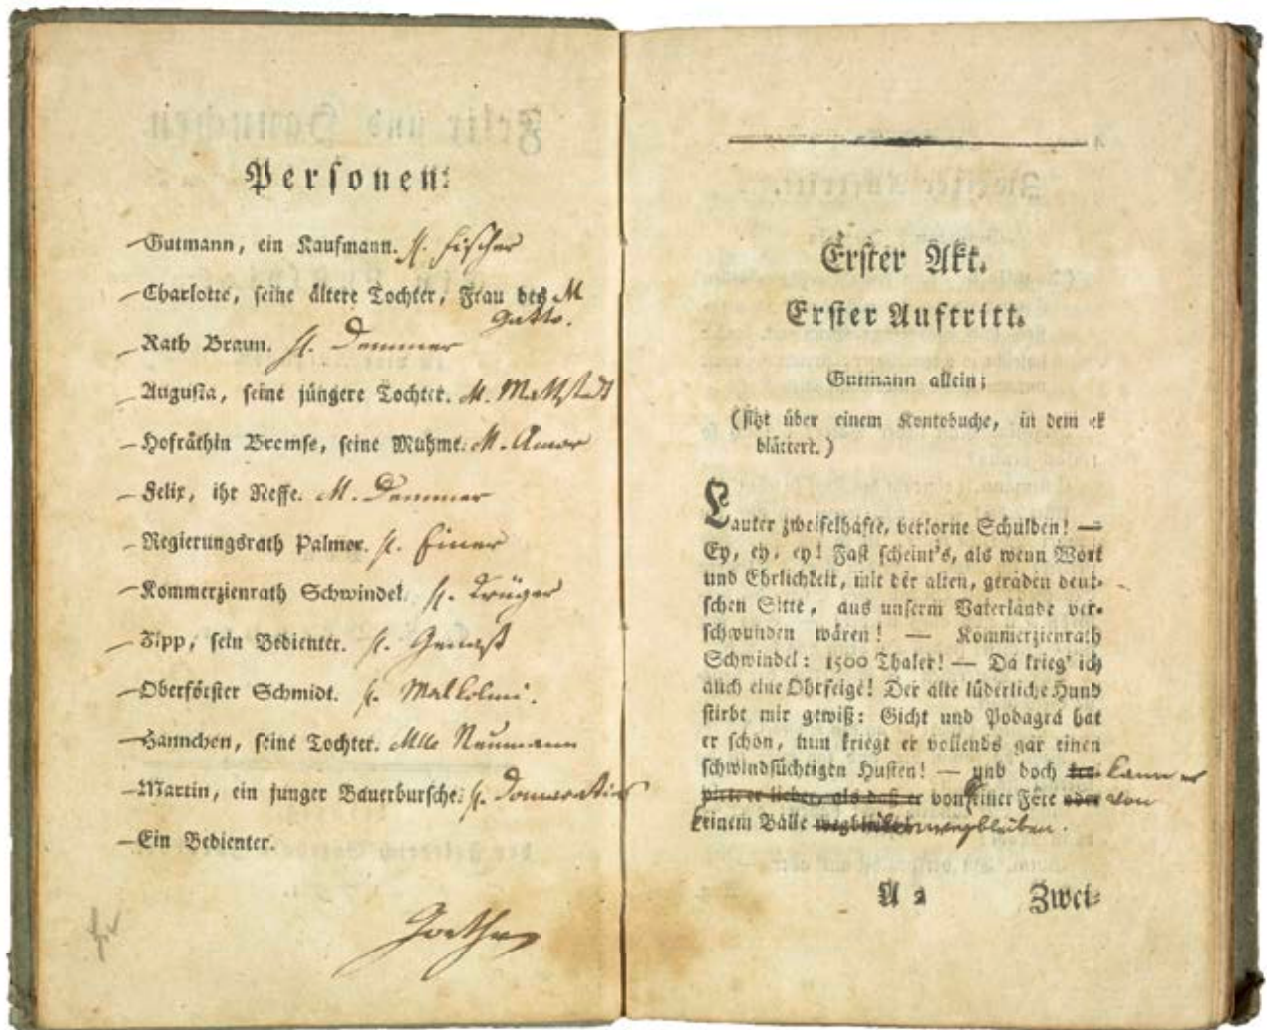 Personen:
Gutmann, ein Kaufmann. H. Fischer
Charlotte, seine ältere Tochter, Frau des M
Gatto.
Rath Braun. H. Demmer
Augusta, seine jüngere Tochter. M. Mattstedt
Hofräthin Bremse, seine Muhme. M. Amor
Felix, ihr Neffe. M. Demmer
Regierungsrath Palmer. H. Einer
Kommerzienrath Schwindel. H. Krüger
Zipp, sein Bedienter. H. Genast
Oberförster Schmidt. H. Malkolmi.
Hannchen, seine Tochter. Mlle Neumann
Martin, ein junger Bauerbursche. H.
Ein Bedienter.
Goethe
Erster Akt.
Erster Auftritt.
Gutmann allein;
(sitzt über einem Kontobuche, in dem er
blättert.)
Lauter zweifelhafte, verlorne Schulden! —
Ey, ey, ey! Fast scheint's, als wenn Wort
und Ehrlichkeit, mit der alten, geraden deut-
schen Sitte, aus unserm Vaterlande ver-
schwunden wären! — Kommerzienrath
Schwindel: 1500 Thaler! — Da krieg' ich
auch eine Ohrfeige! Der alte lüderliche Hund
stirbt mir gewiß: Gicht und Podagra hat
er schon, nun kriegt er vollends gar einen
schwindsüchtigen Husten! — und doch kann er
lieber, als daß er von keiner Fete oder von
keinem Balle wegbleiben.
A 2 Zwei-